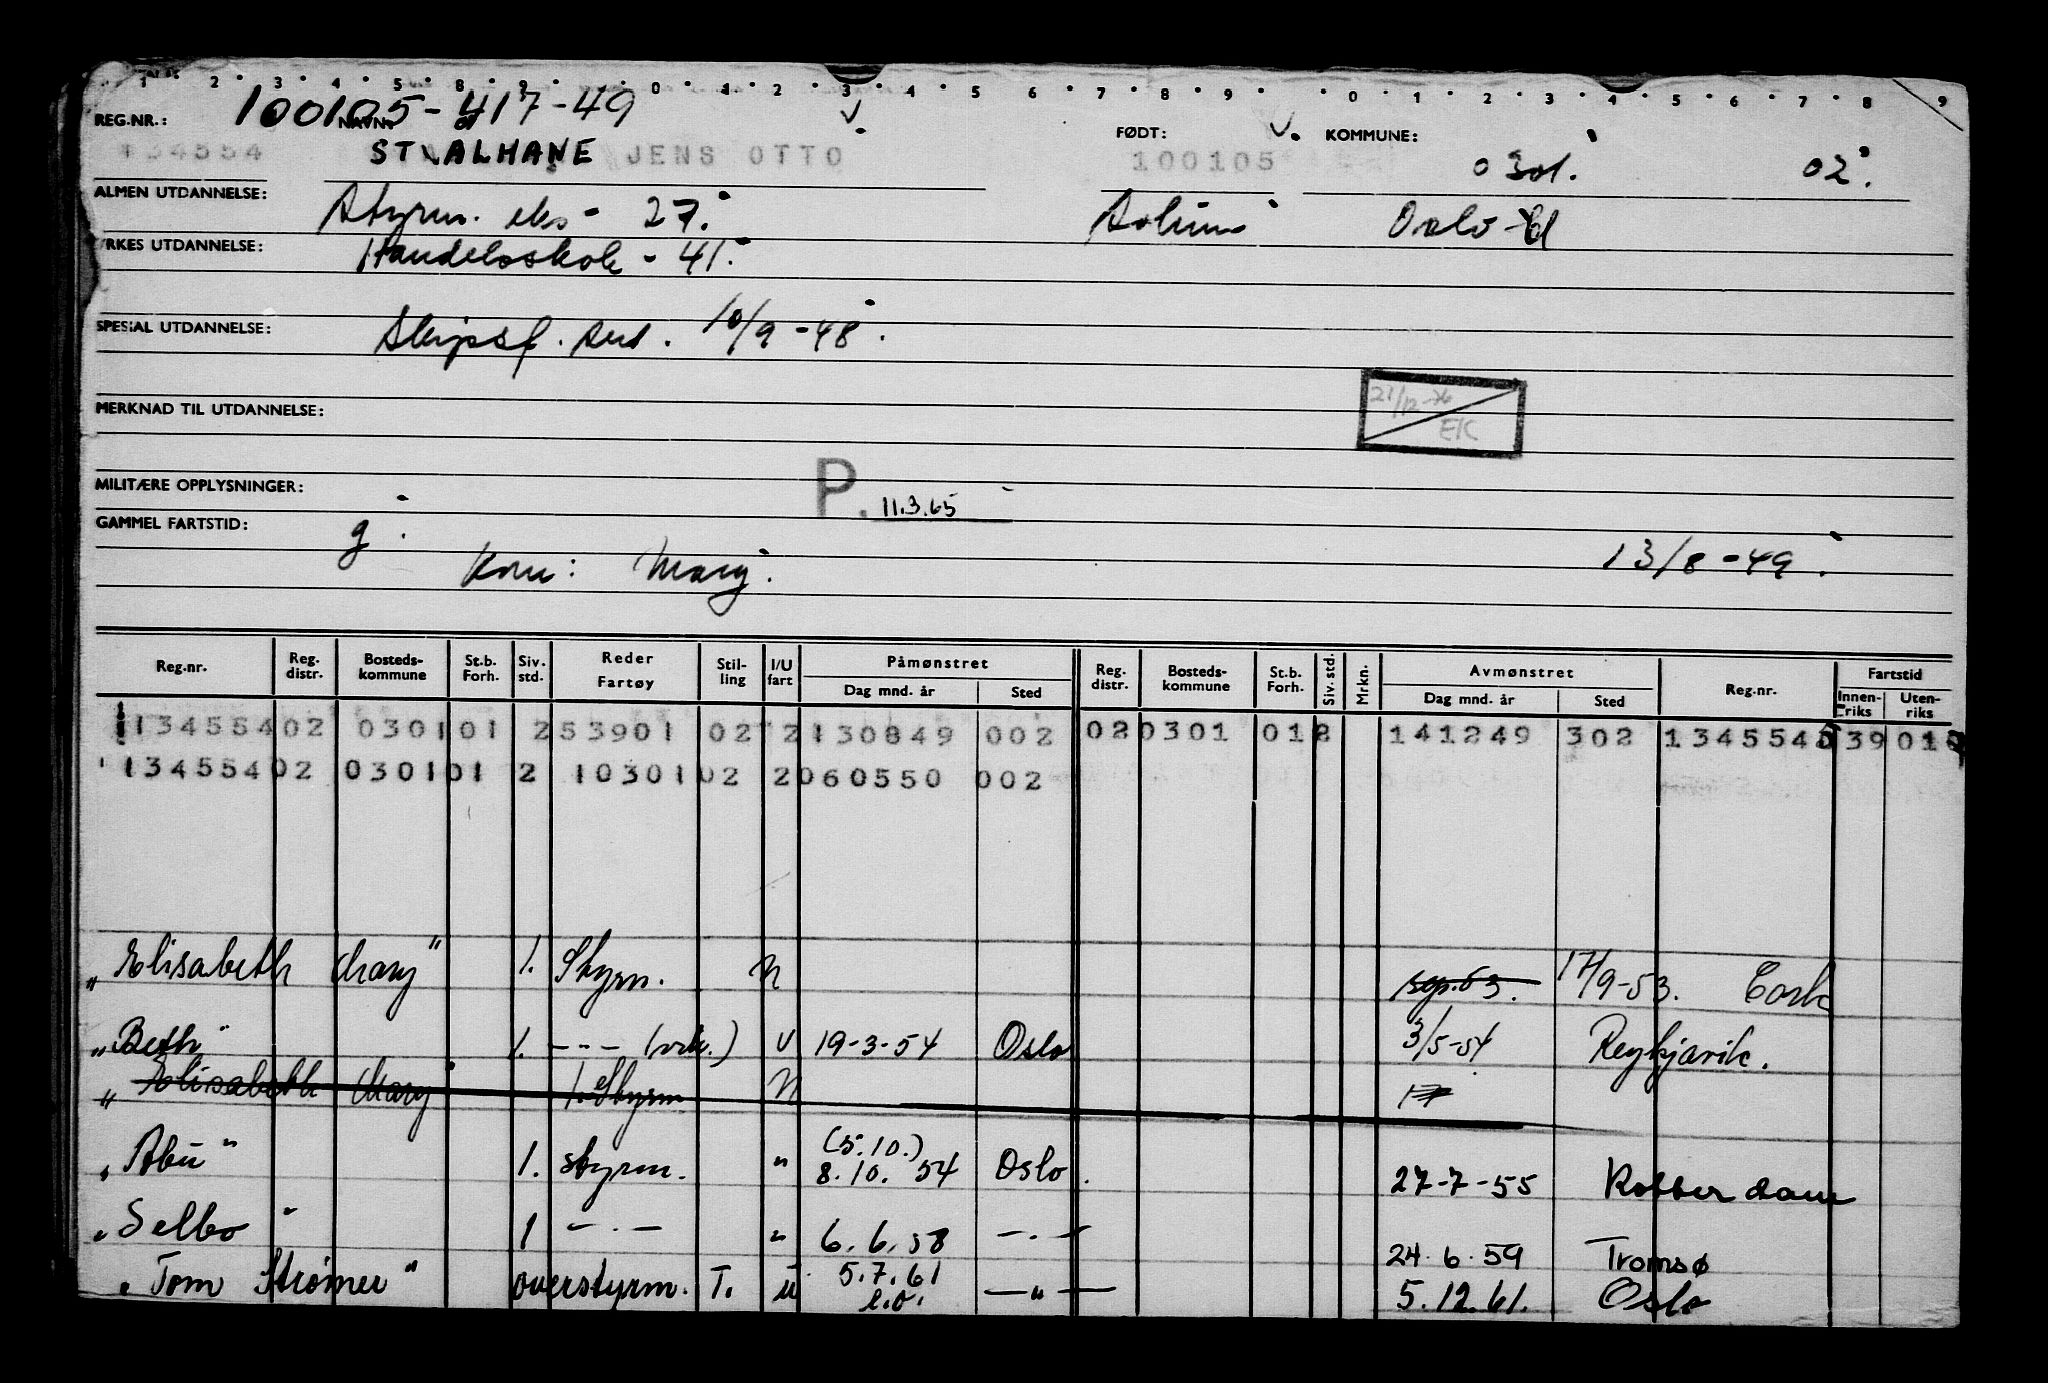 1 2 3 4 5 8 9 0 1 2 3 4 5 6 7 8 9 0 1 2 3 4 5 6 7 8 9
REG.NR.: 100105-417-49 NAVN: FØDT: KOMMUNE:
134554 STALHANE JENS OTTO 100105 0301. 02.
ALMEN UTDANNELSE: Styrm. eks - 27. Oslo
YRKES UTDANNELSE: Handelsskole - 41.
SPESIAL UTDANNELSE: Skipsf. 10/9-48.
MERKNAD TIL UTDANNELSE: 21/12-76 EK
MILITÆRE OPPLYSNINGER: P. 11.3.65
GAMMEL FARTSTID: g.
Kom: Mary. 13/8-49.
Reg.nr. Reg. distr. Bosteds-kommune St.b. Forh. Siv. std. Reder Fartøy Stil-ling I/U fart Påmønstret Dag mnd. år Sted Reg. distr. Bosteds-kommune St.b. Forh. Siv. std. Mrkn. Avmønstret Dag mnd. år Sted Reg.nr. Fartstid Innen-riks Uten-riks
134554 02 0301 01 2 53901 02 2 130849 002 02 0301 01 2 141249 302 134554 39 01
134554 02 0301 01 2 10301 02 2 060550 002
"Elisabeth Mary" 1. Styrm. N sep. 53. 17/9-53. Cork
"Beth" 1. --- U 19-3-54 Oslo 3/5-54 Reykjavik.
"Elisabeth Mary 1. Styrm N 17
"Abu" 1. styrm. " (5.10.) 8.10. 54 Oslo. 27-7-55 Rotterdam
"Selbo" 1 -.- " 6.6.58 -.- 24.6.59 Tromsø
"Tom Strømer" overstyrm. T. u 5.7.61 e.o. -"- 5.12.61. Oslo